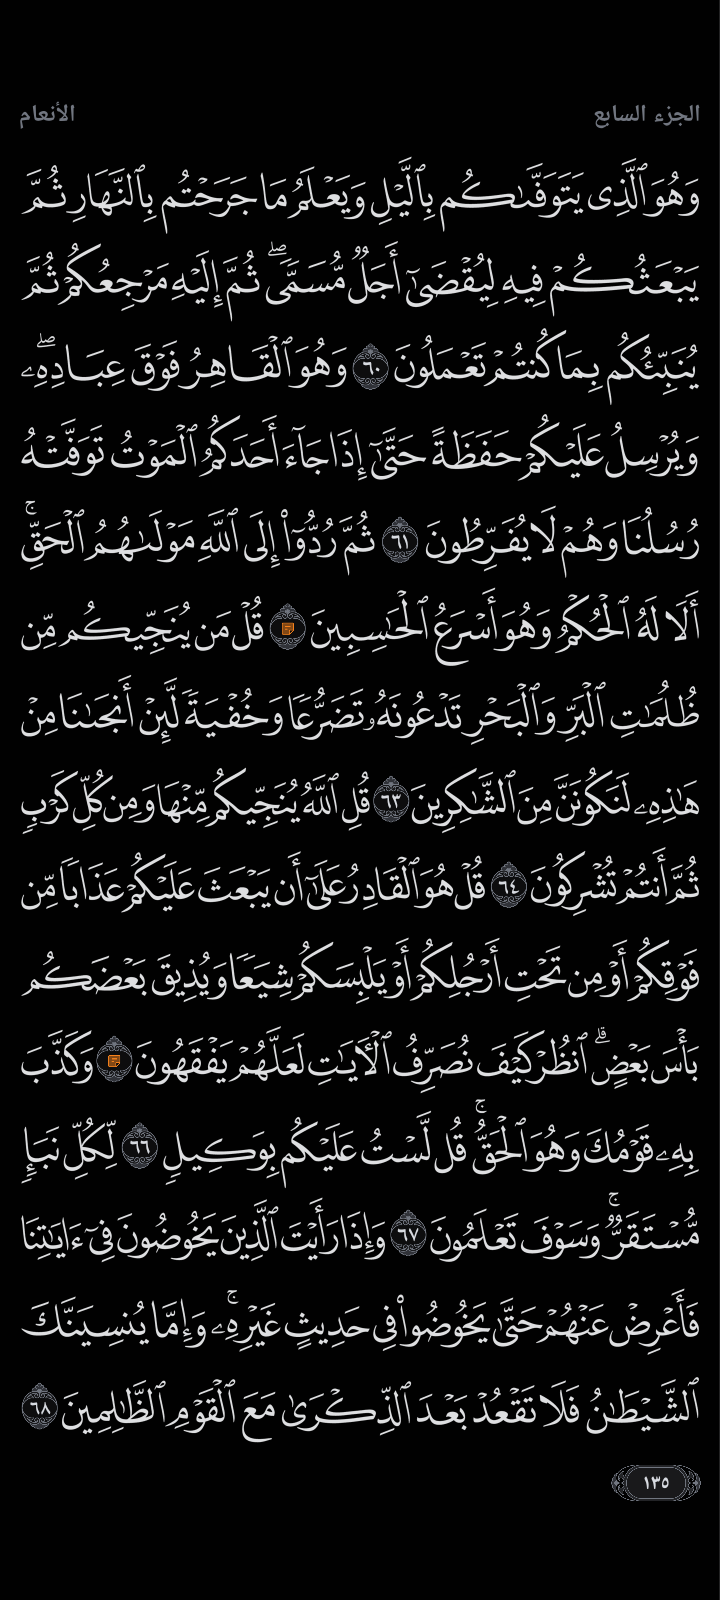 الجزء السابع
الأنعام
وَهُوَ ٱلَّذِى يَتَوَفَّىٰكُم بِٱلَّيْلِ وَيَعْلَمُ مَا جَرَحْتُم بِٱلنَّهَارِ ثُمَّ
يَبْعَثُكُمْ فِيهِ لِيُقْضَىٰٓ أَجَلٌ مُّسَمًّى ۖ ثُمَّ إِلَيْهِ مَرْجِعُكُمْ ثُمَّ
يُنَبِّئُكُم بِمَا كُنتُمْ تَعْمَلُونَ ٦٠ وَهُوَ ٱلْقَاهِرُ فَوْقَ عِبَادِهِۦ ۖ
وَيُرْسِلُ عَلَيْكُمْ حَفَظَةً حَتَّىٰٓ إِذَا جَآءَ أَحَدَكُمُ ٱلْمَوْتُ تَوَفَّتْهُ
رُسُلُنَا وَهُمْ لَا يُفَرِّطُونَ ٦١ ثُمَّ رُدُّوٓا۟ إِلَى ٱللَّهِ مَوْلَىٰهُمُ ٱلْحَقِّ ۚ
أَلَا لَهُ ٱلْحُكْمُ وَهُوَ أَسْرَعُ ٱلْحَـٰسِبِينَ قُلْ مَن يُنَجِّيكُم مِّن
ظُلُمَـٰتِ ٱلْبَرِّ وَٱلْبَحْرِ تَدْعُونَهُۥ تَضَرُّعًا وَخُفْيَةً لَّئِنْ أَنجَىٰنَا مِنْ
هَـٰذِهِۦ لَنَكُونَنَّ مِنَ ٱلشَّـٰكِرِينَ ٦٣ قُلِ ٱللَّهُ يُنَجِّيكُم مِّنْهَا وَمِن كُلِّ كَرْبٍ
ثُمَّ أَنتُمْ تُشْرِكُونَ ٦٤ قُلْ هُوَ ٱلْقَادِرُ عَلَىٰٓ أَن يَبْعَثَ عَلَيْكُمْ عَذَابًا مِّن
فَوْقِكُمْ أَوْ مِن تَحْتِ أَرْجُلِكُمْ أَوْ يَلْبِسَكُمْ شِيَعًا وَيُذِيقَ بَعْضَكُم
بَأْسَ بَعْضٍ ۗ ٱنظُرْ كَيْفَ نُصَرِّفُ ٱلْـَٔايَـٰتِ لَعَلَّهُمْ يَفْقَهُونَ وَكَذَّبَ
بِهِۦ قَوْمُكَ وَهُوَ ٱلْحَقُّ ۚ قُل لَّسْتُ عَلَيْكُم بِوَكِيلٍ ٦٦ لِّكُلِّ نَبَإٍ
مُّسْتَقَرٌّ ۚ وَسَوْفَ تَعْلَمُونَ ٦٧ وَإِذَا رَأَيْتَ ٱلَّذِينَ يَخُوضُونَ فِىٓ ءَايَـٰتِنَا
فَأَعْرِضْ عَنْهُمْ حَتَّىٰ يَخُوضُوا۟ فِى حَدِيثٍ غَيْرِهِۦ ۚ وَإِمَّا يُنسِيَنَّكَ
ٱلشَّيْطَـٰنُ فَلَا تَقْعُدْ بَعْدَ ٱلذِّكْرَىٰ مَعَ ٱلْقَوْمِ ٱلظَّـٰلِمِينَ ٦٨
١٣٥